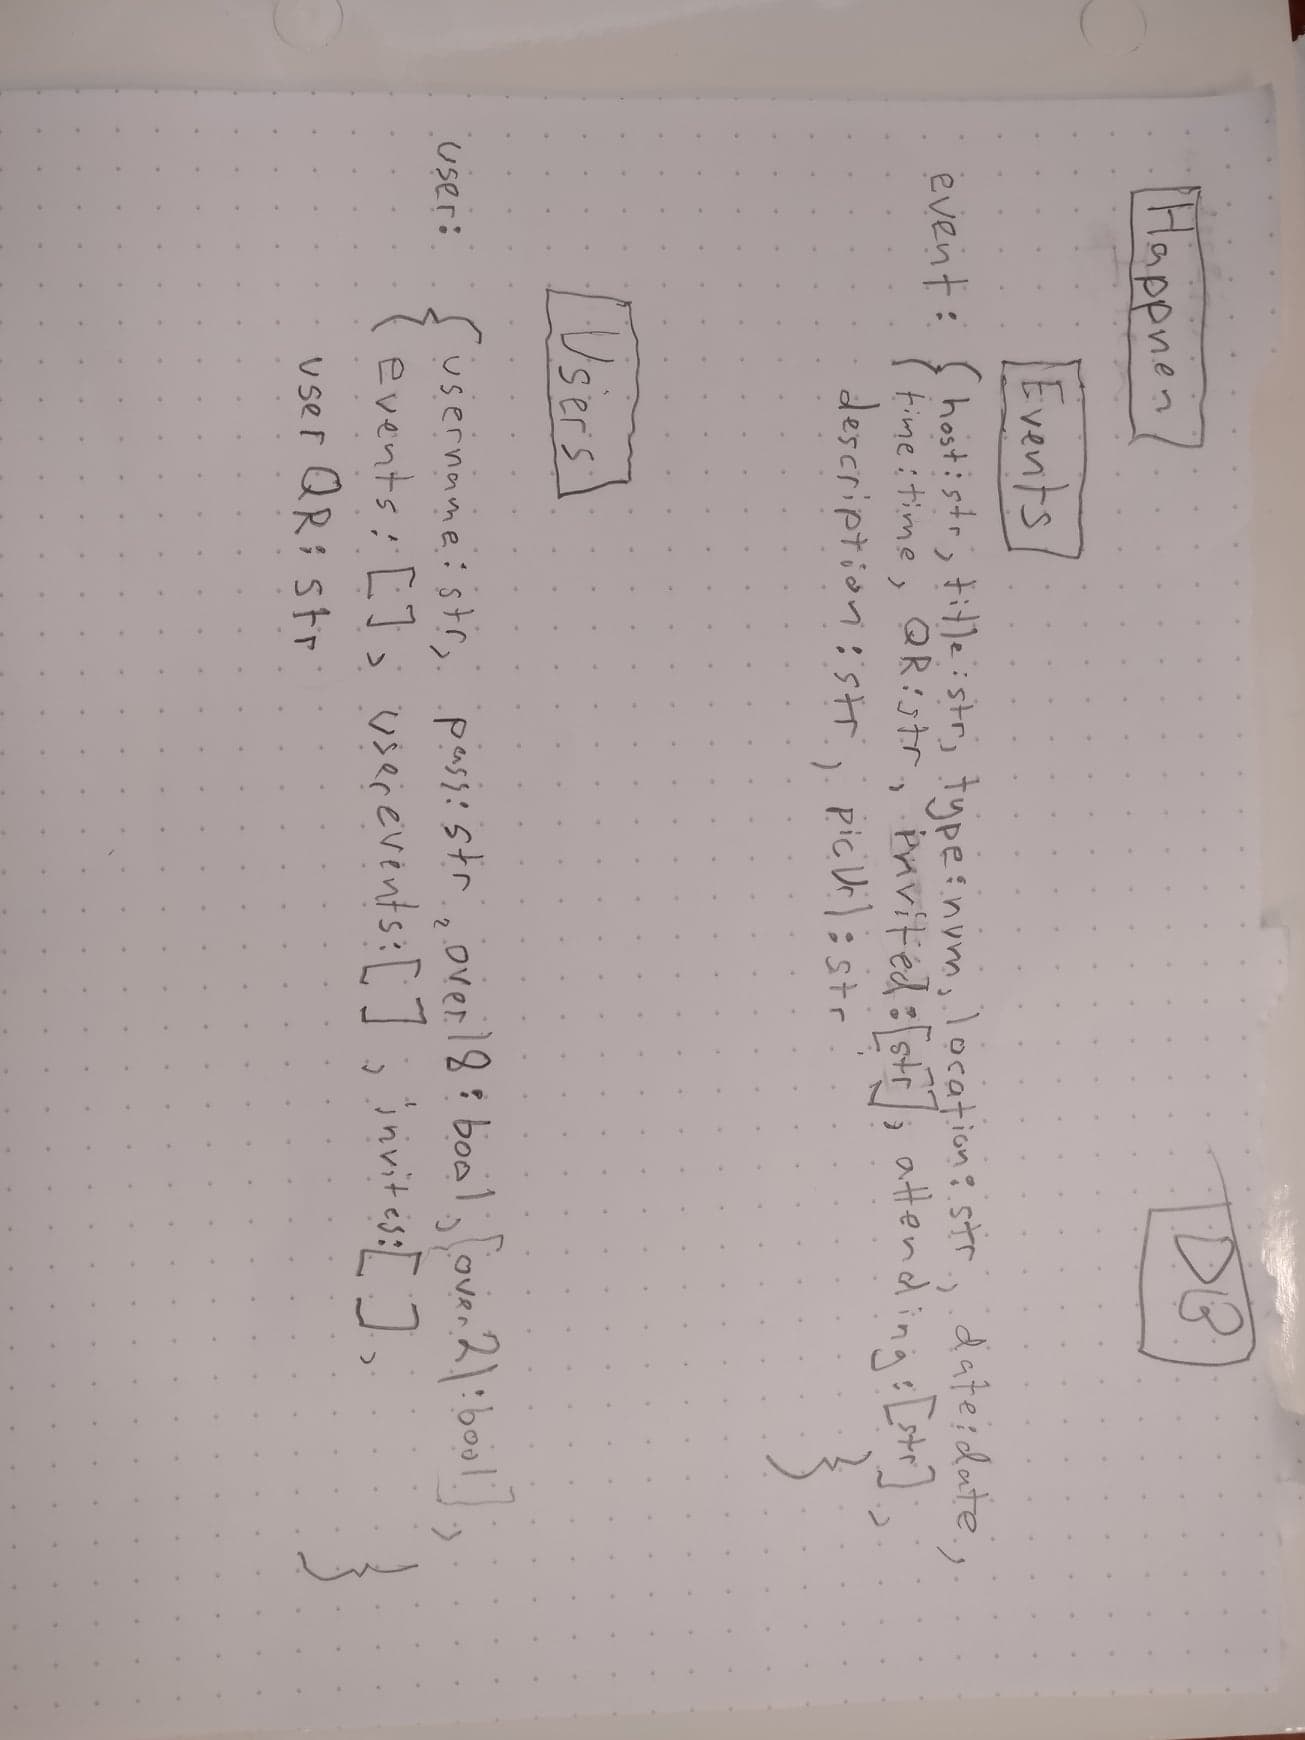 Happnen
DB
Events
event: { host:str, title:str, type:num, location:str, date:date,
time:time, QR:str, invited:[str], attending:[str],
description:str, picUrl:str }
Users
user: { username:str, pass:str, over18:bool, [over21:bool],
events:[], userevents:[], invites:[],
userQR:str }